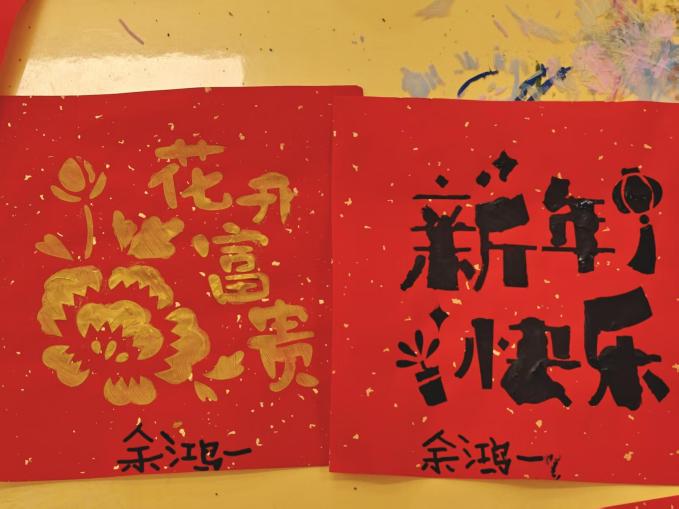 花开
富
贵
余鸿一
新年
快乐
余鸿一